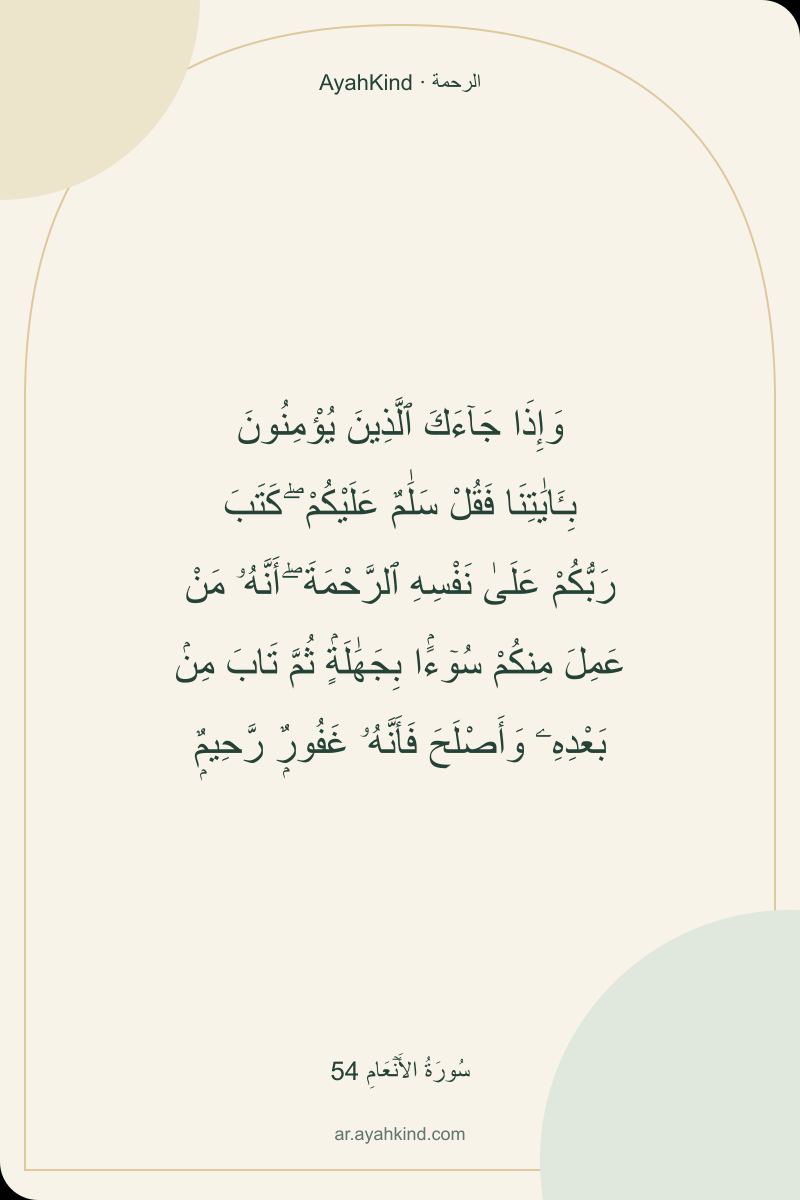 AyahKind · الرحمة
وَإِذَا جَآءَكَ ٱلَّذِينَ يُؤْمِنُونَ
بِـَٔايَـٰتِنَا فَقُلْ سَلَـٰمٌ عَلَيْكُمْ ۖ كَتَبَ
رَبُّكُمْ عَلَىٰ نَفْسِهِ ٱلرَّحْمَةَ ۖ أَنَّهُۥ مَنْ
عَمِلَ مِنكُمْ سُوٓءًۢا بِجَهَـٰلَةٍۢ ثُمَّ تَابَ مِنۢ
بَعْدِهِۦ وَأَصْلَحَ فَأَنَّهُۥ غَفُورٌۭ رَّحِيمٌۭ
سُورَةُ الأَنۡعَامِ 54
ar.ayahkind.com